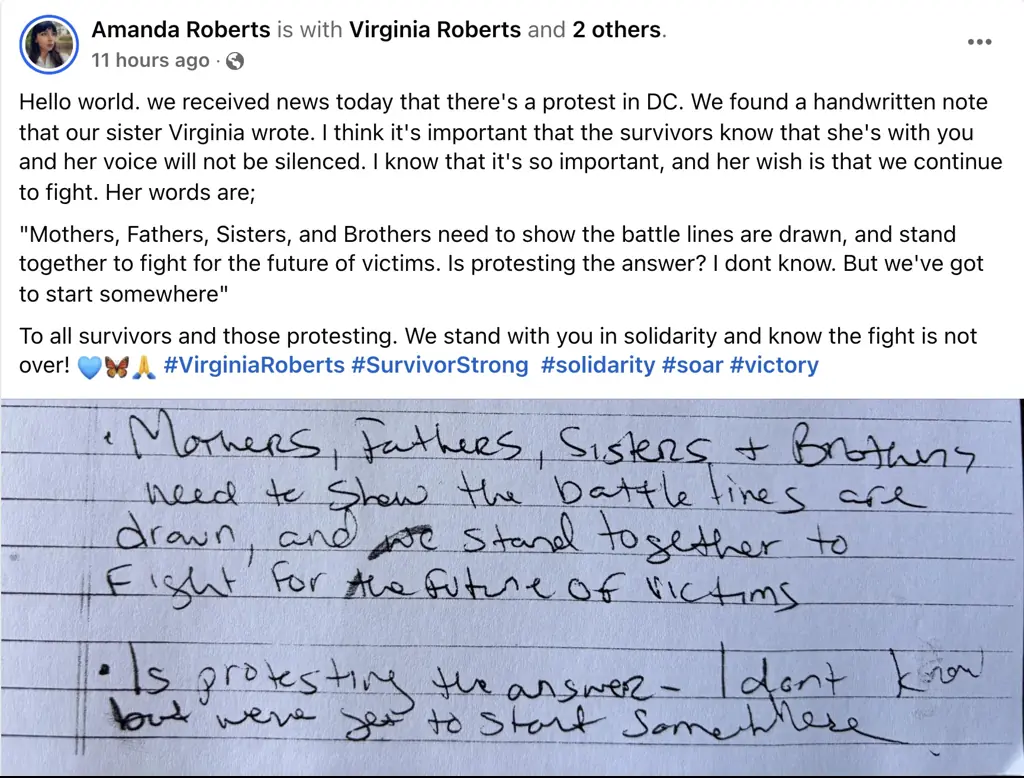 Amanda Roberts is with Virginia Roberts and 2 others.
11 hours ago ·
Hello world. we received news today that there's a protest in DC. We found a handwritten note
that our sister Virginia wrote. I think it's important that the survivors know that she's with you
and her voice will not be silenced. I know that it's so important, and her wish is that we continue
to fight. Her words are;
"Mothers, Fathers, Sisters, and Brothers need to show the battle lines are drawn, and stand
together to fight for the future of victims. Is protesting the answer? I dont know. But we've got
to start somewhere"
To all survivors and those protesting. We stand with you in solidarity and know the fight is not
over! 🩵🦋🙏 #VirginiaRoberts #SurvivorStrong #solidarity #soar #victory
• Mothers, Fathers, Sisters + Brothers
need to show the battle lines are
drawn, and we stand together to
Fight for the future of victims
• Is protesting the answer - I dont know
but weve got to start somewhere